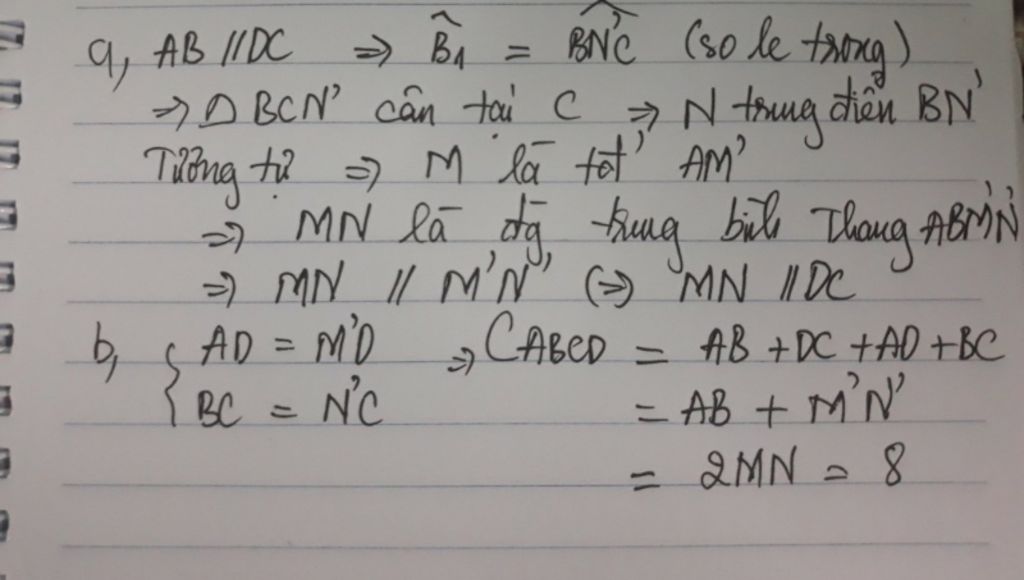 a, AB // DC ⇒ B̂₁ = BN'C (so le trong)
⇒ Δ BCN' cân tại C ⇒ N trung điểm BN'
Tương tự ⇒ M là tđ' AM'
⇒ MN là đg trung bình Thang ABM'N'
⇒ MN // M'N' (⇒) MN // DC
b, { AD = M'D ⇒ CABCD = AB + DC + AD + BC
BC = N'C = AB + M'N'
= 2MN = 8